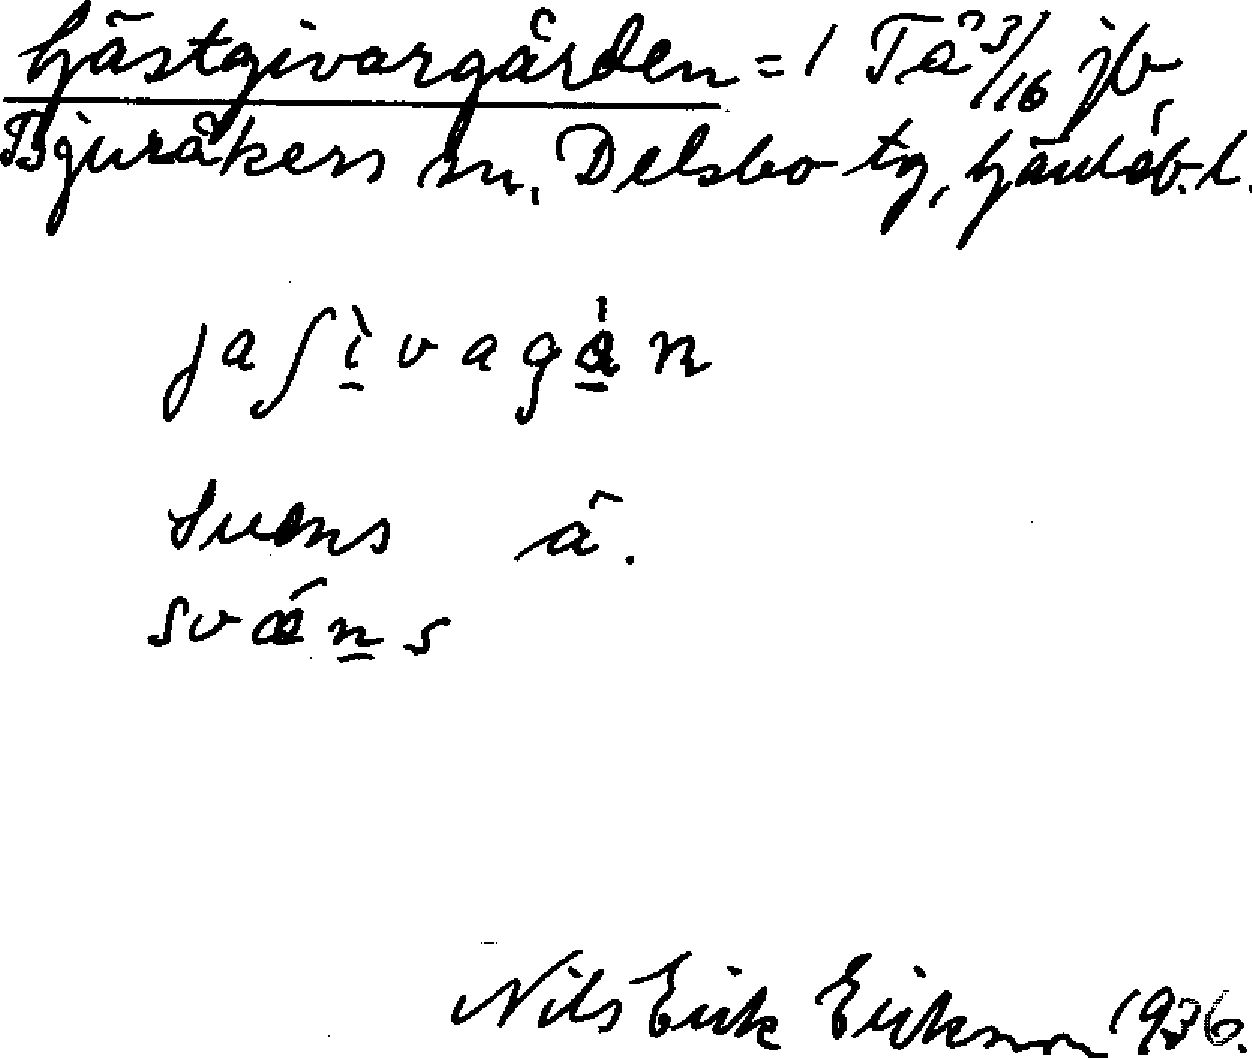 Gästgivargården = 1 Tå 3/16 jb,
Bjuråkers sn, Delsbo tg, Gävleb. l.
jaʃìvagán
Svens å.
svǽns
Nils Erik Erikson 1936.